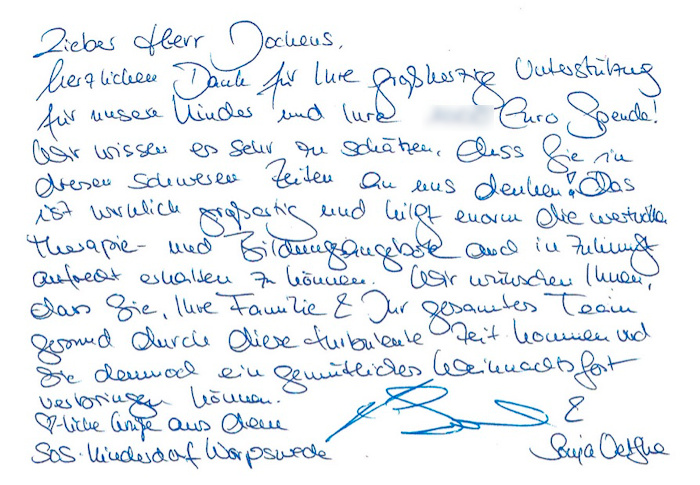 Lieber Herr Dochens,
herzlichen Dank für Ihre großherzige Unterstützung
für unsere Kinder und Ihre Euro Spende!
Wir wissen es sehr zu schätzen, dass Sie in
diesen schweren Zeiten an uns denken! Das
ist wirklich großartig und hilft enorm die wertvollen
Therapie- und Bildungsangebote auch in Zukunft
aufrecht erhalten zu können. Wir wünschen Ihnen,
dass Sie, Ihre Familie & Ihr gesamtes Team
gesund durch diese turbulente Zeit kommen und
Sie dennoch ein gemütliches Weihnachtsfest
verbringen können.
♡-liche Grüße aus dem
&
SOS-Kinderdorf Worpswede
Sonja